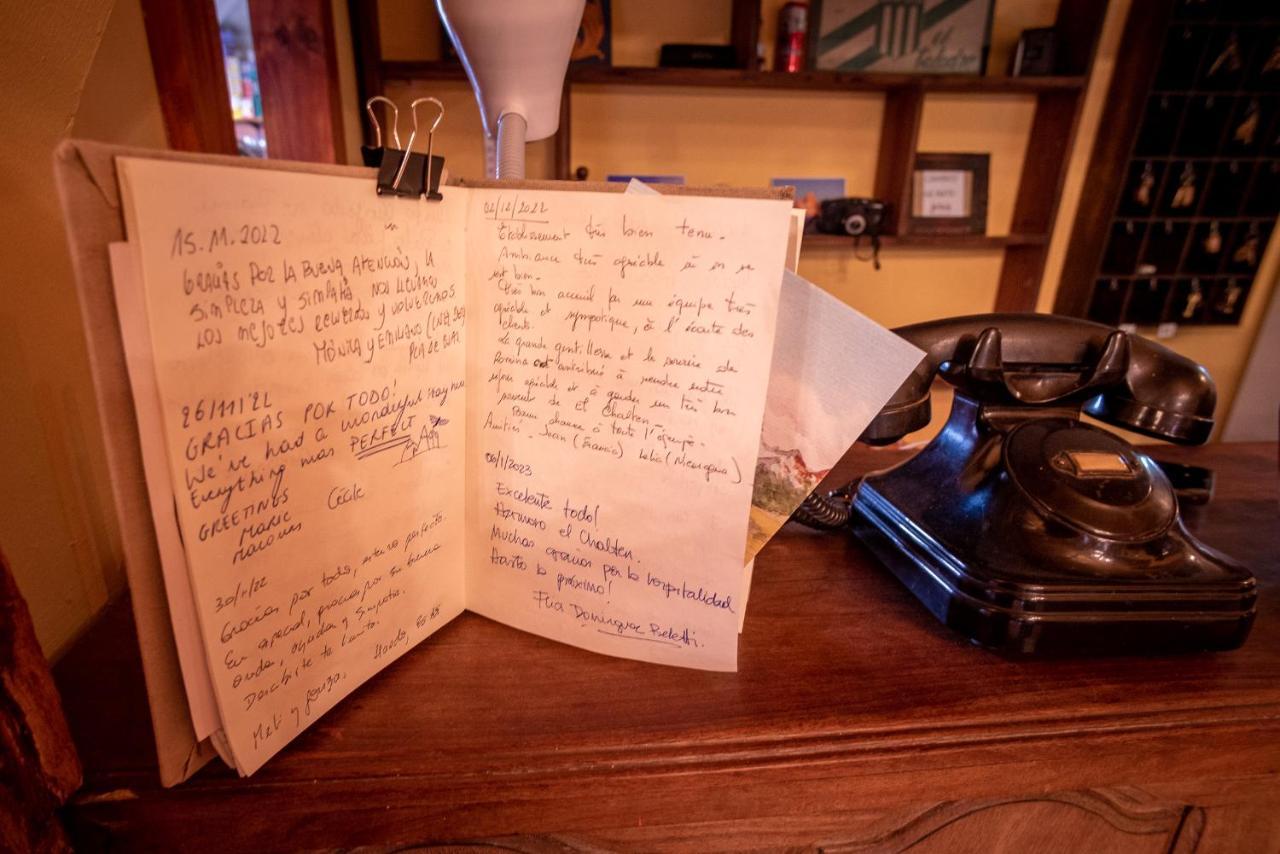 15.11.2022
GRACIAS POR LA BUENA ATENCIÓN, LA
SIMPLEZA Y SIMPATÍA, NOS LLEVAMOS
LOS MEJORES RECUERDOS Y VOLVEREMOS
MÓNICA Y EMILIANO
26/11/22
GRACIAS POR TODO!
We've had a wonderful stay here
Everything was PERFECT
GREETINGS
MARIE Cécile
30/11/22
Gracias por todo, estuvo perfecto.
En especial, gracias por su buena
onda, ayuda y simpatia.
Meli y Gonza.
02/12/2022
Etablissement très bien tenu.
Ambiance très agréable où on se
sent bien.
Très bon accueil par une équipe très
agréable et sympatique, à l'écoute des
clients.
La grande gentillesse et le sourire de
Romina ont contribué à rendre notre
séjour agréable et à garder un très bon
souvenir de el Chalten.
Bonne chance à toute l'équipe.
Amitiés. Jean (Francia) (Nicaragua)
06/1/2023
Excelente todo!
Hermoso el Chalten.
Muchas gracias por la hospitalidad
Hasta la próxima!
Flia Dominguez